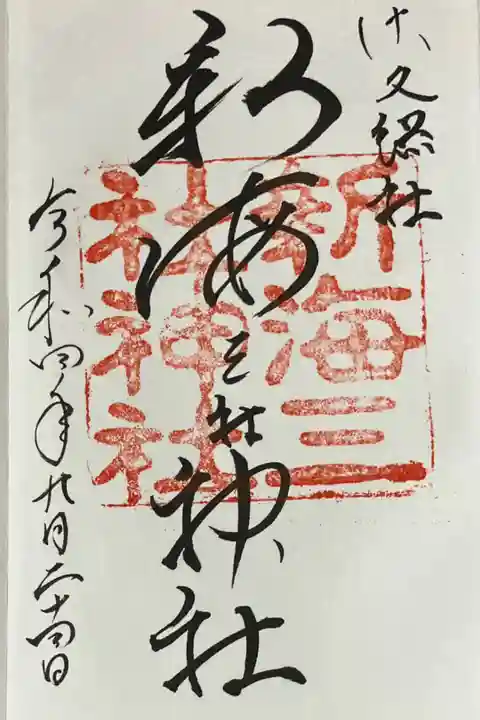 佐久総社
新海三社神社
新海三
社神社
令和四年九月二十四日